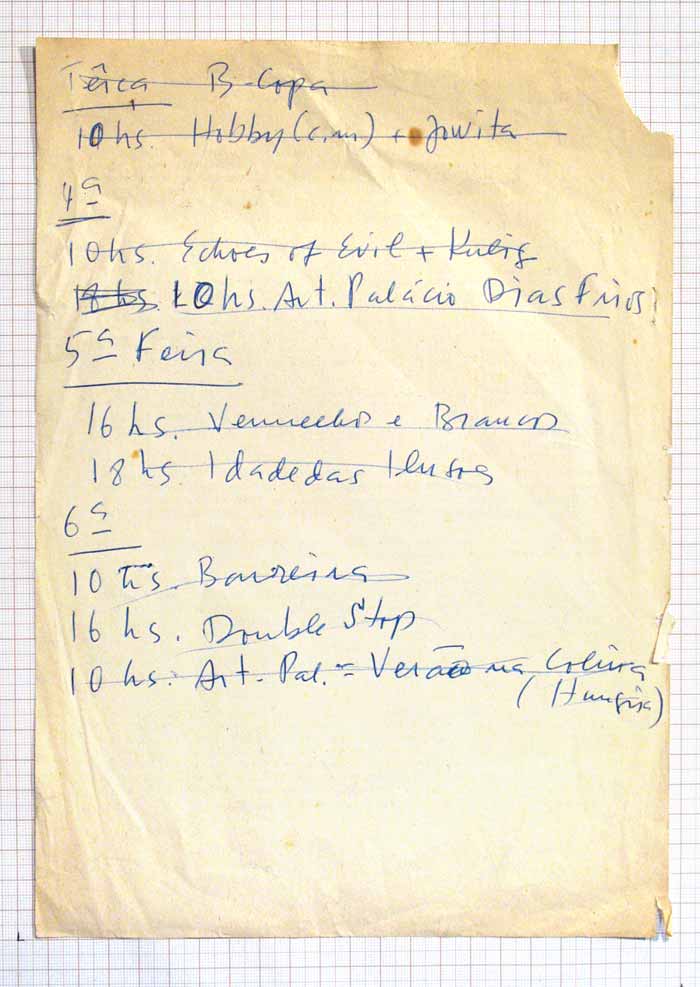 Têrça B-Copa
10 hs. Hobby (c.m) + Jowita
4ª
10 hs. Echoes of Evil + Kulig
18 hs. 10 hs. Art. Palácio Dias Frios
5ª Feira
16 hs. Vermelhos e Brancos
18 hs. Idade das Ilusões
6ª
10 hs. Barreira
16 hs. Double Stop
10 hs. Art. Pal. = Verão na Colina
(Hungria)